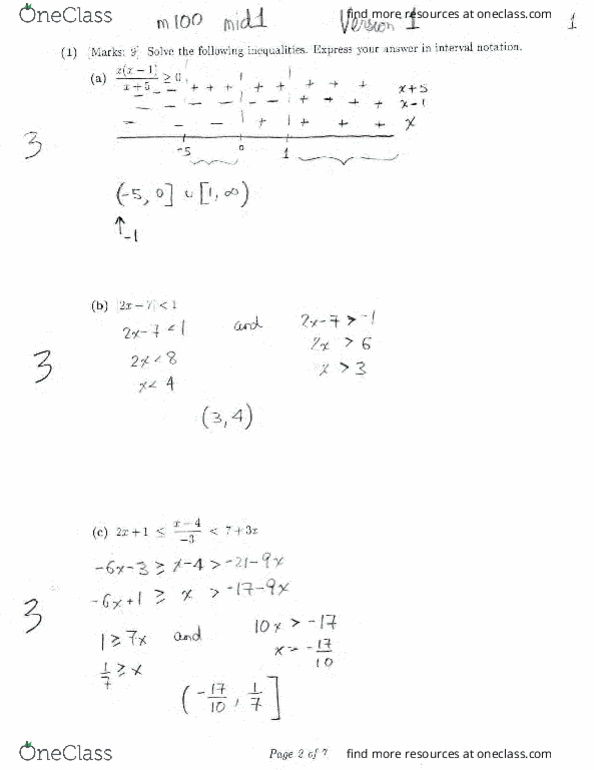 OneClass
find more resources at oneclass.com
m100 mid1 Version 1
1
(1) [Marks: 9] Solve the following inequalities. Express your answer in interval notation.
(a) x(x − 1)/x + 5 ≥ 0
− − + + + + + + + + x+5
− − − − − − + + + + x−1
− − − + + + + x
-5 0 1
3
(-5, 0] ∪ [1, ∞)
↑
-1
(b) |2x − 7| < 1
2x-7 < 1 and 2x-7 > -1
2x < 8 2x > 6
3
x < 4 x > 3
(3, 4)
(c) 2x + 1 ≤ x − 4/−3 < 7 + 3x
-6x-3 ≥ x-4 > -21-9x
-6x+1 ≥ x > -17-9x
3
1 ≥ 7x and 10x > -17
1/7 ≥ x x > -17/10
(-17/10, 1/7]
OneClass
Page 2 of 7
find more resources at oneclass.com